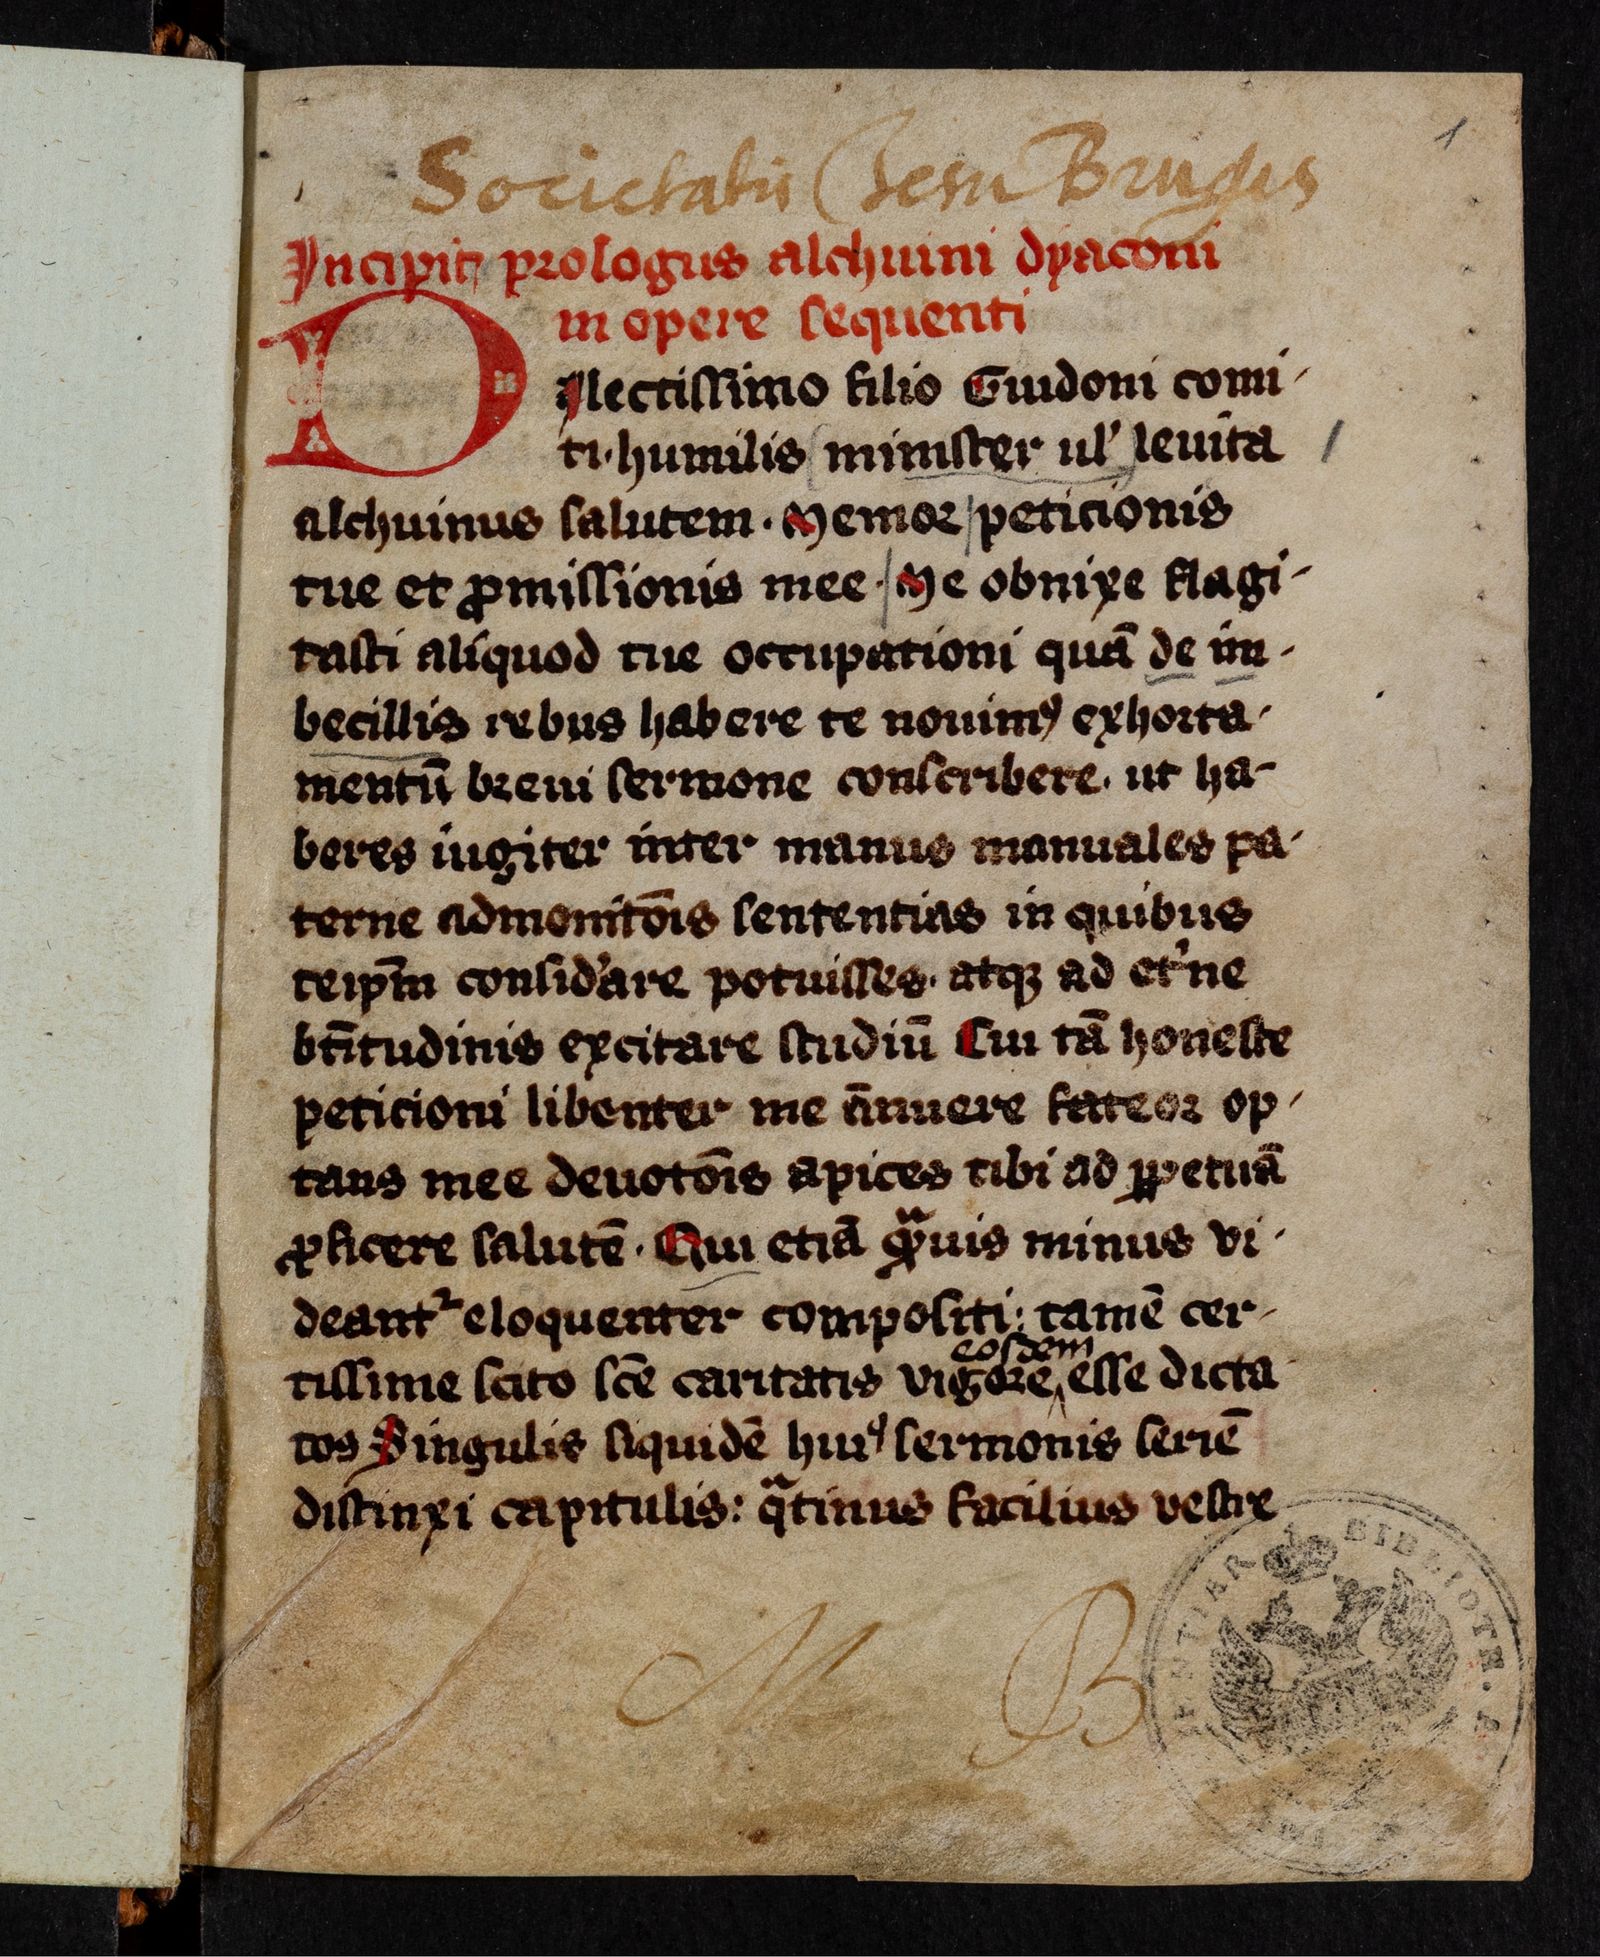 1
Societatis Jesu Brugis
Incipit prologus alchuini dyaconi
in opere sequenti
Dilectissimo filio Guidoni comi-
ti·humilis minister ul' leuita
alchuinus salutem. Memor peticionis
tue et ꝓmissionis mee. Me obnixe flagi-
tasti aliquod tue occupationi quā de im-
becillis rebus habere te nouimꝰ exhorta-
mentū breui sermone conscribere. ut ha-
beres iugiter inter manus manuales pa-
terne admonitōis sententias in quibus
teip̄m consid'are potuisses. atqꝫ ad et'ne
bt̄itudinis excitare studiū Cui tā honeste
peticioni libenter me ānuere fateor op-
tans mee deuotōis apices tibi ad ꝑpetuā
ꝓficere salutē. Qui etiā qͣ̄uis minus vi-
deantᷣ eloquenter compositi: tamē cer-
tissime scito sc̄e caritatis vigore eosdem esse dicta
tos Singulis siquidē huiꝰ sermonis seriē
distinxi capitulis: qͣtinus facilius vestre
M B
BIBLIOTH